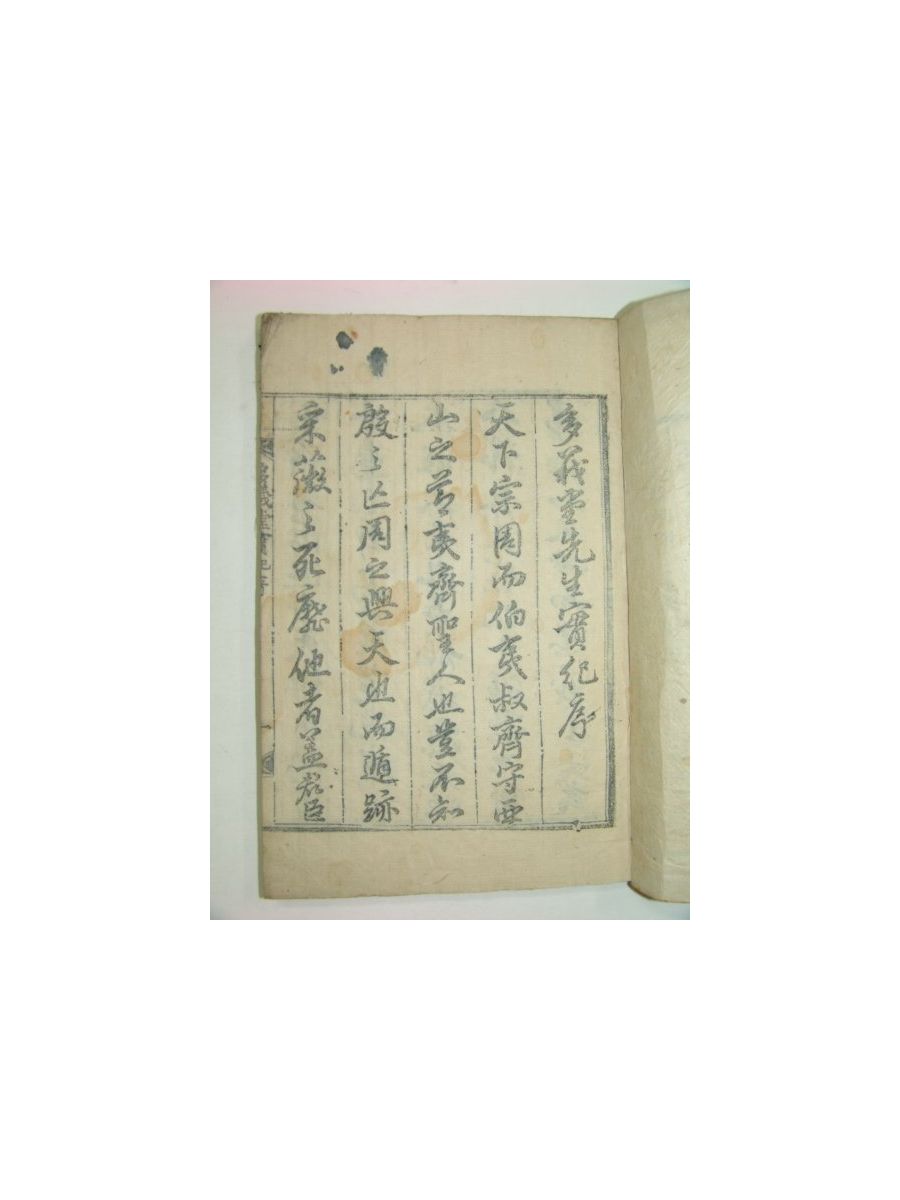 多義堂先生實紀序
天下宗周而伯夷叔齊守西
山之節夷齊聖人也豈不知
殷之亡周之興天也而遁跡
采薇之死靡他者盖君臣
義堂實紀序
一